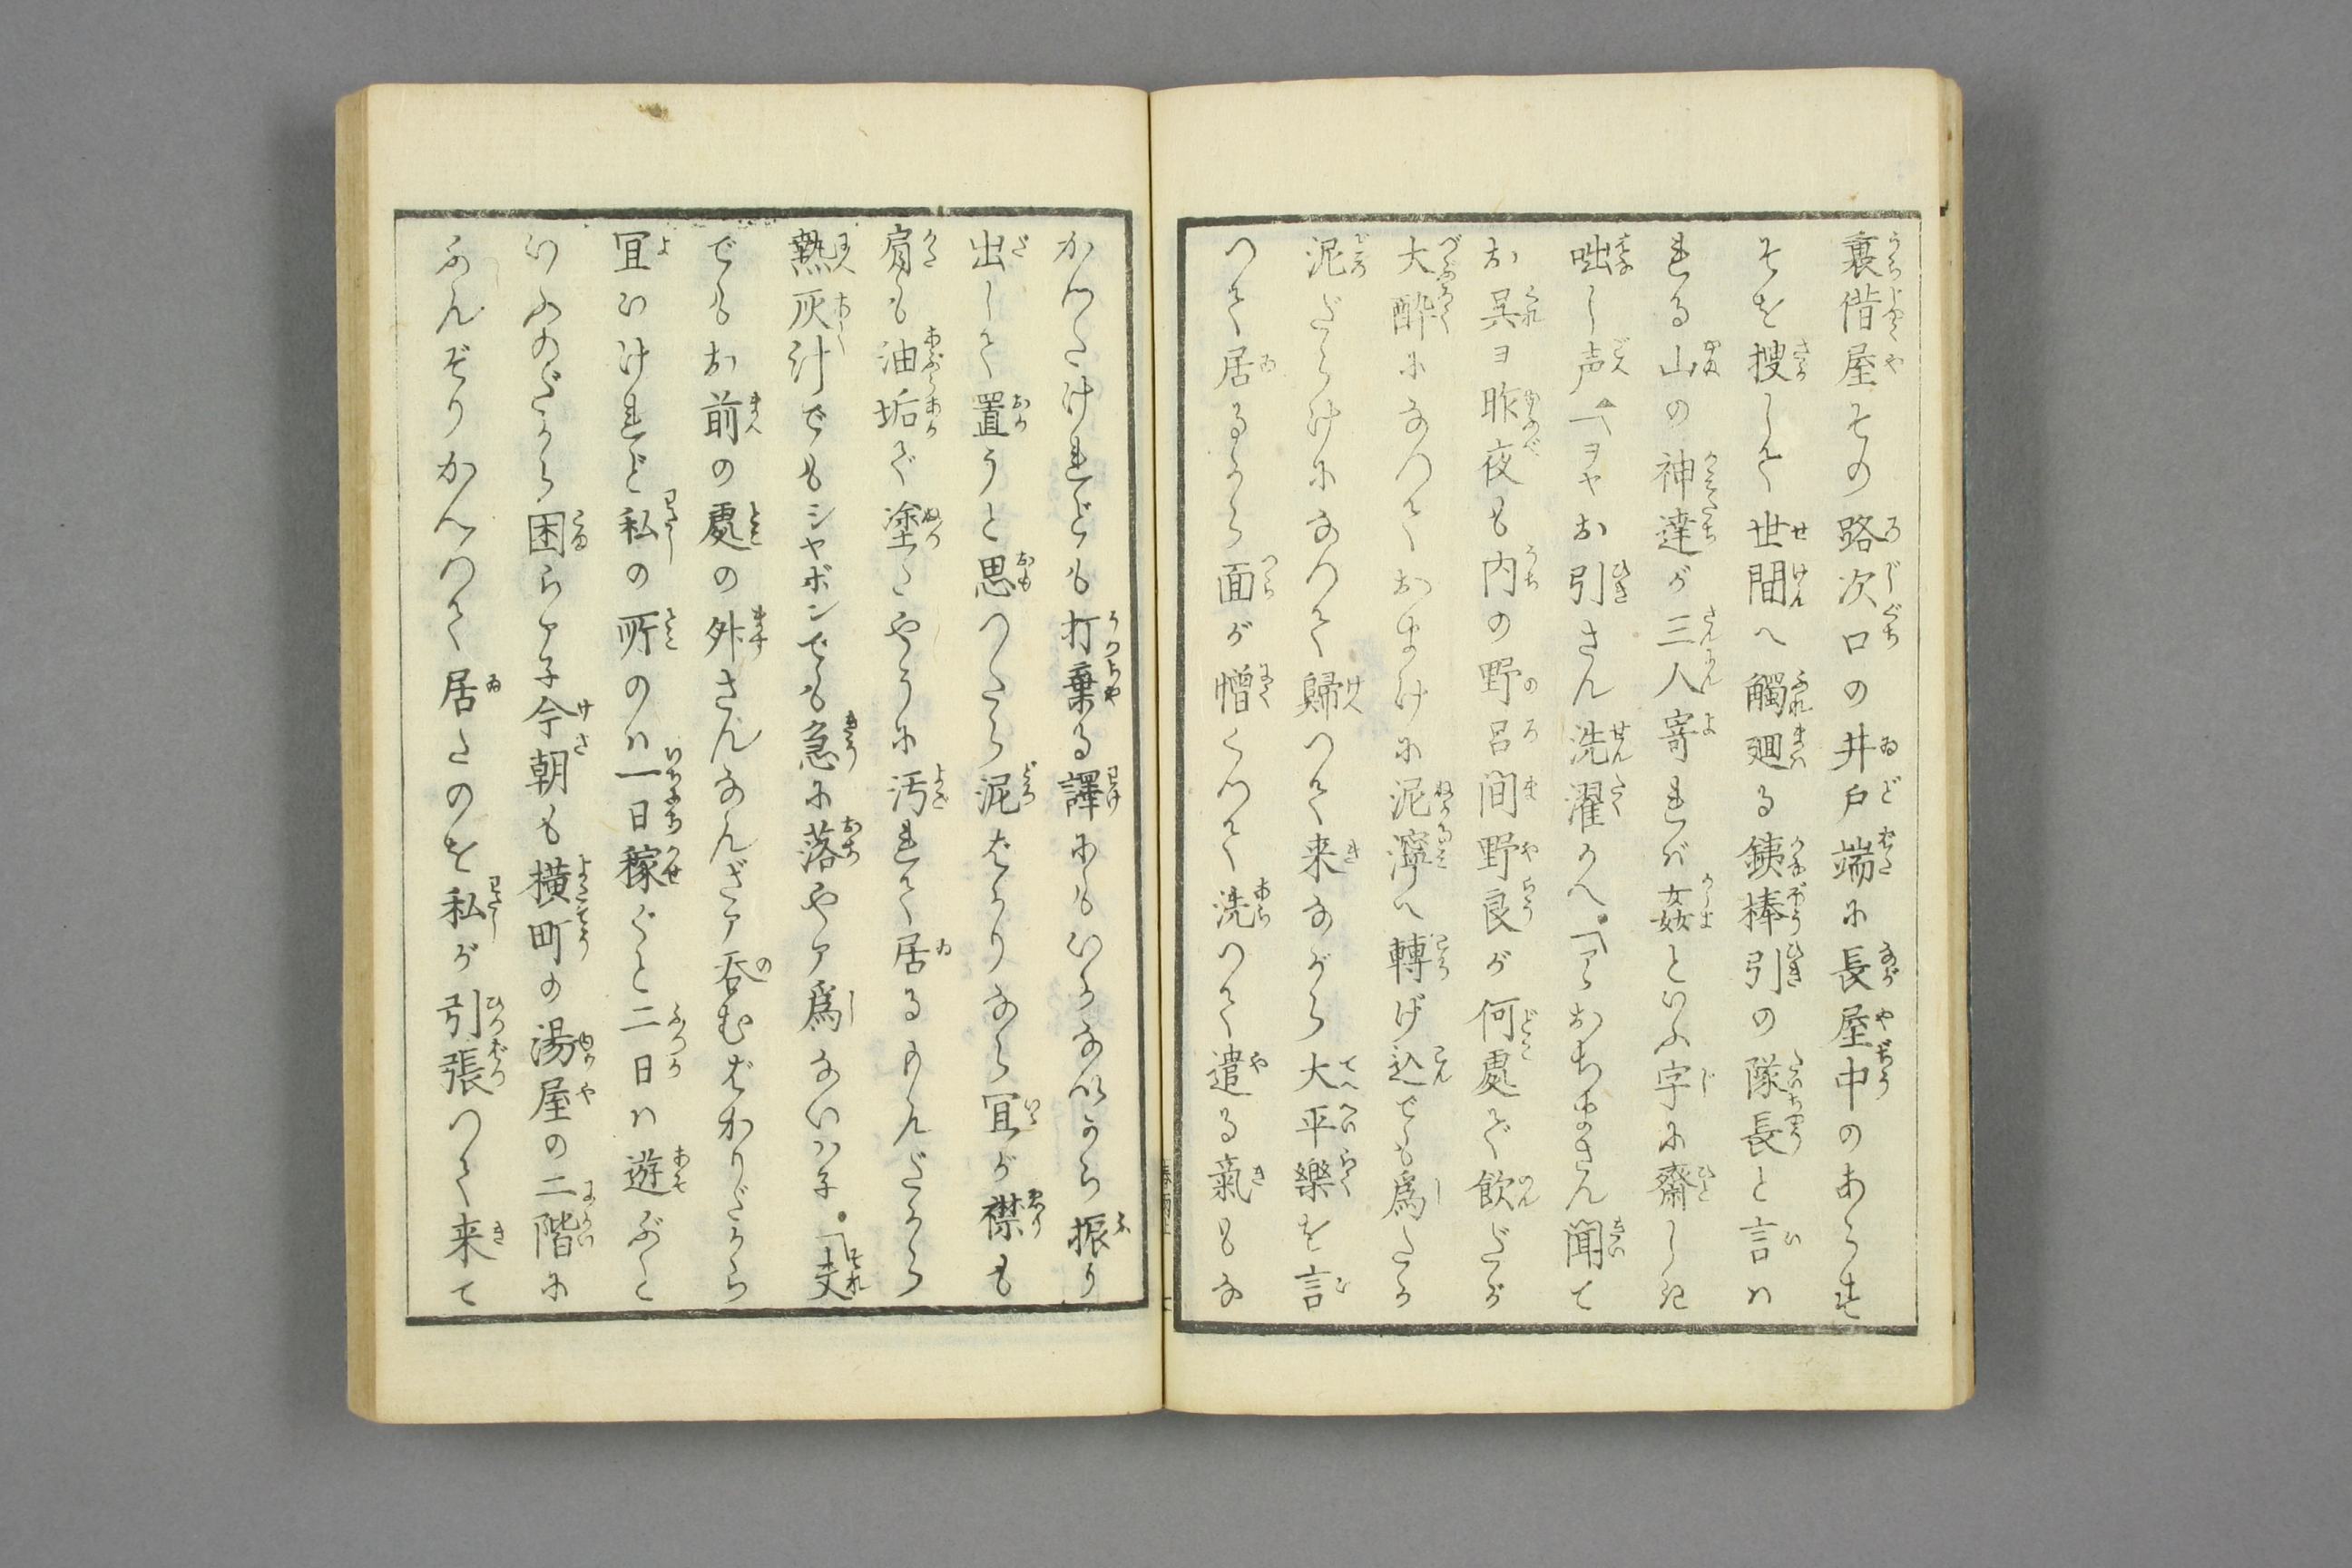 裏借屋その路次口の井戸端に長屋中のあらを
そを捜して世間へ觸廻る銕棒引の隊長と言ハ
れる山の神達が三人寄れバ姦といふ字に齋しき
咄し声「ヲヤお引さん洗濯かへ。「アヽおちまさん聞て
お呉ヨ昨夜も内の野呂間野良が何處で飲だか
大酔になつておまけに泥濘へ轉げ込でも爲たか
泥だらけになつて歸つて来ながら大平樂を言
つて居るから面が憎くつて洗つて遣る氣もな
かつたけれども打棄る譯にもいかないから振り
出して置うと思つたら泥ばかりなら宜が襟も
肩も油垢で塗たやうに汚れて居るもんだから
熱灰汁でもシヤボンでも急に落やア爲ないハ子。「夫
でもお前の處の外さんなんざア呑むばかりだから
宜いけれど私の所のハ一日稼ぐと二日ハ遊ぶと
いふのだから困らア子今朝も横町の湯屋の二階に
ふんぞりかへつて居たのを私が引張つて来て